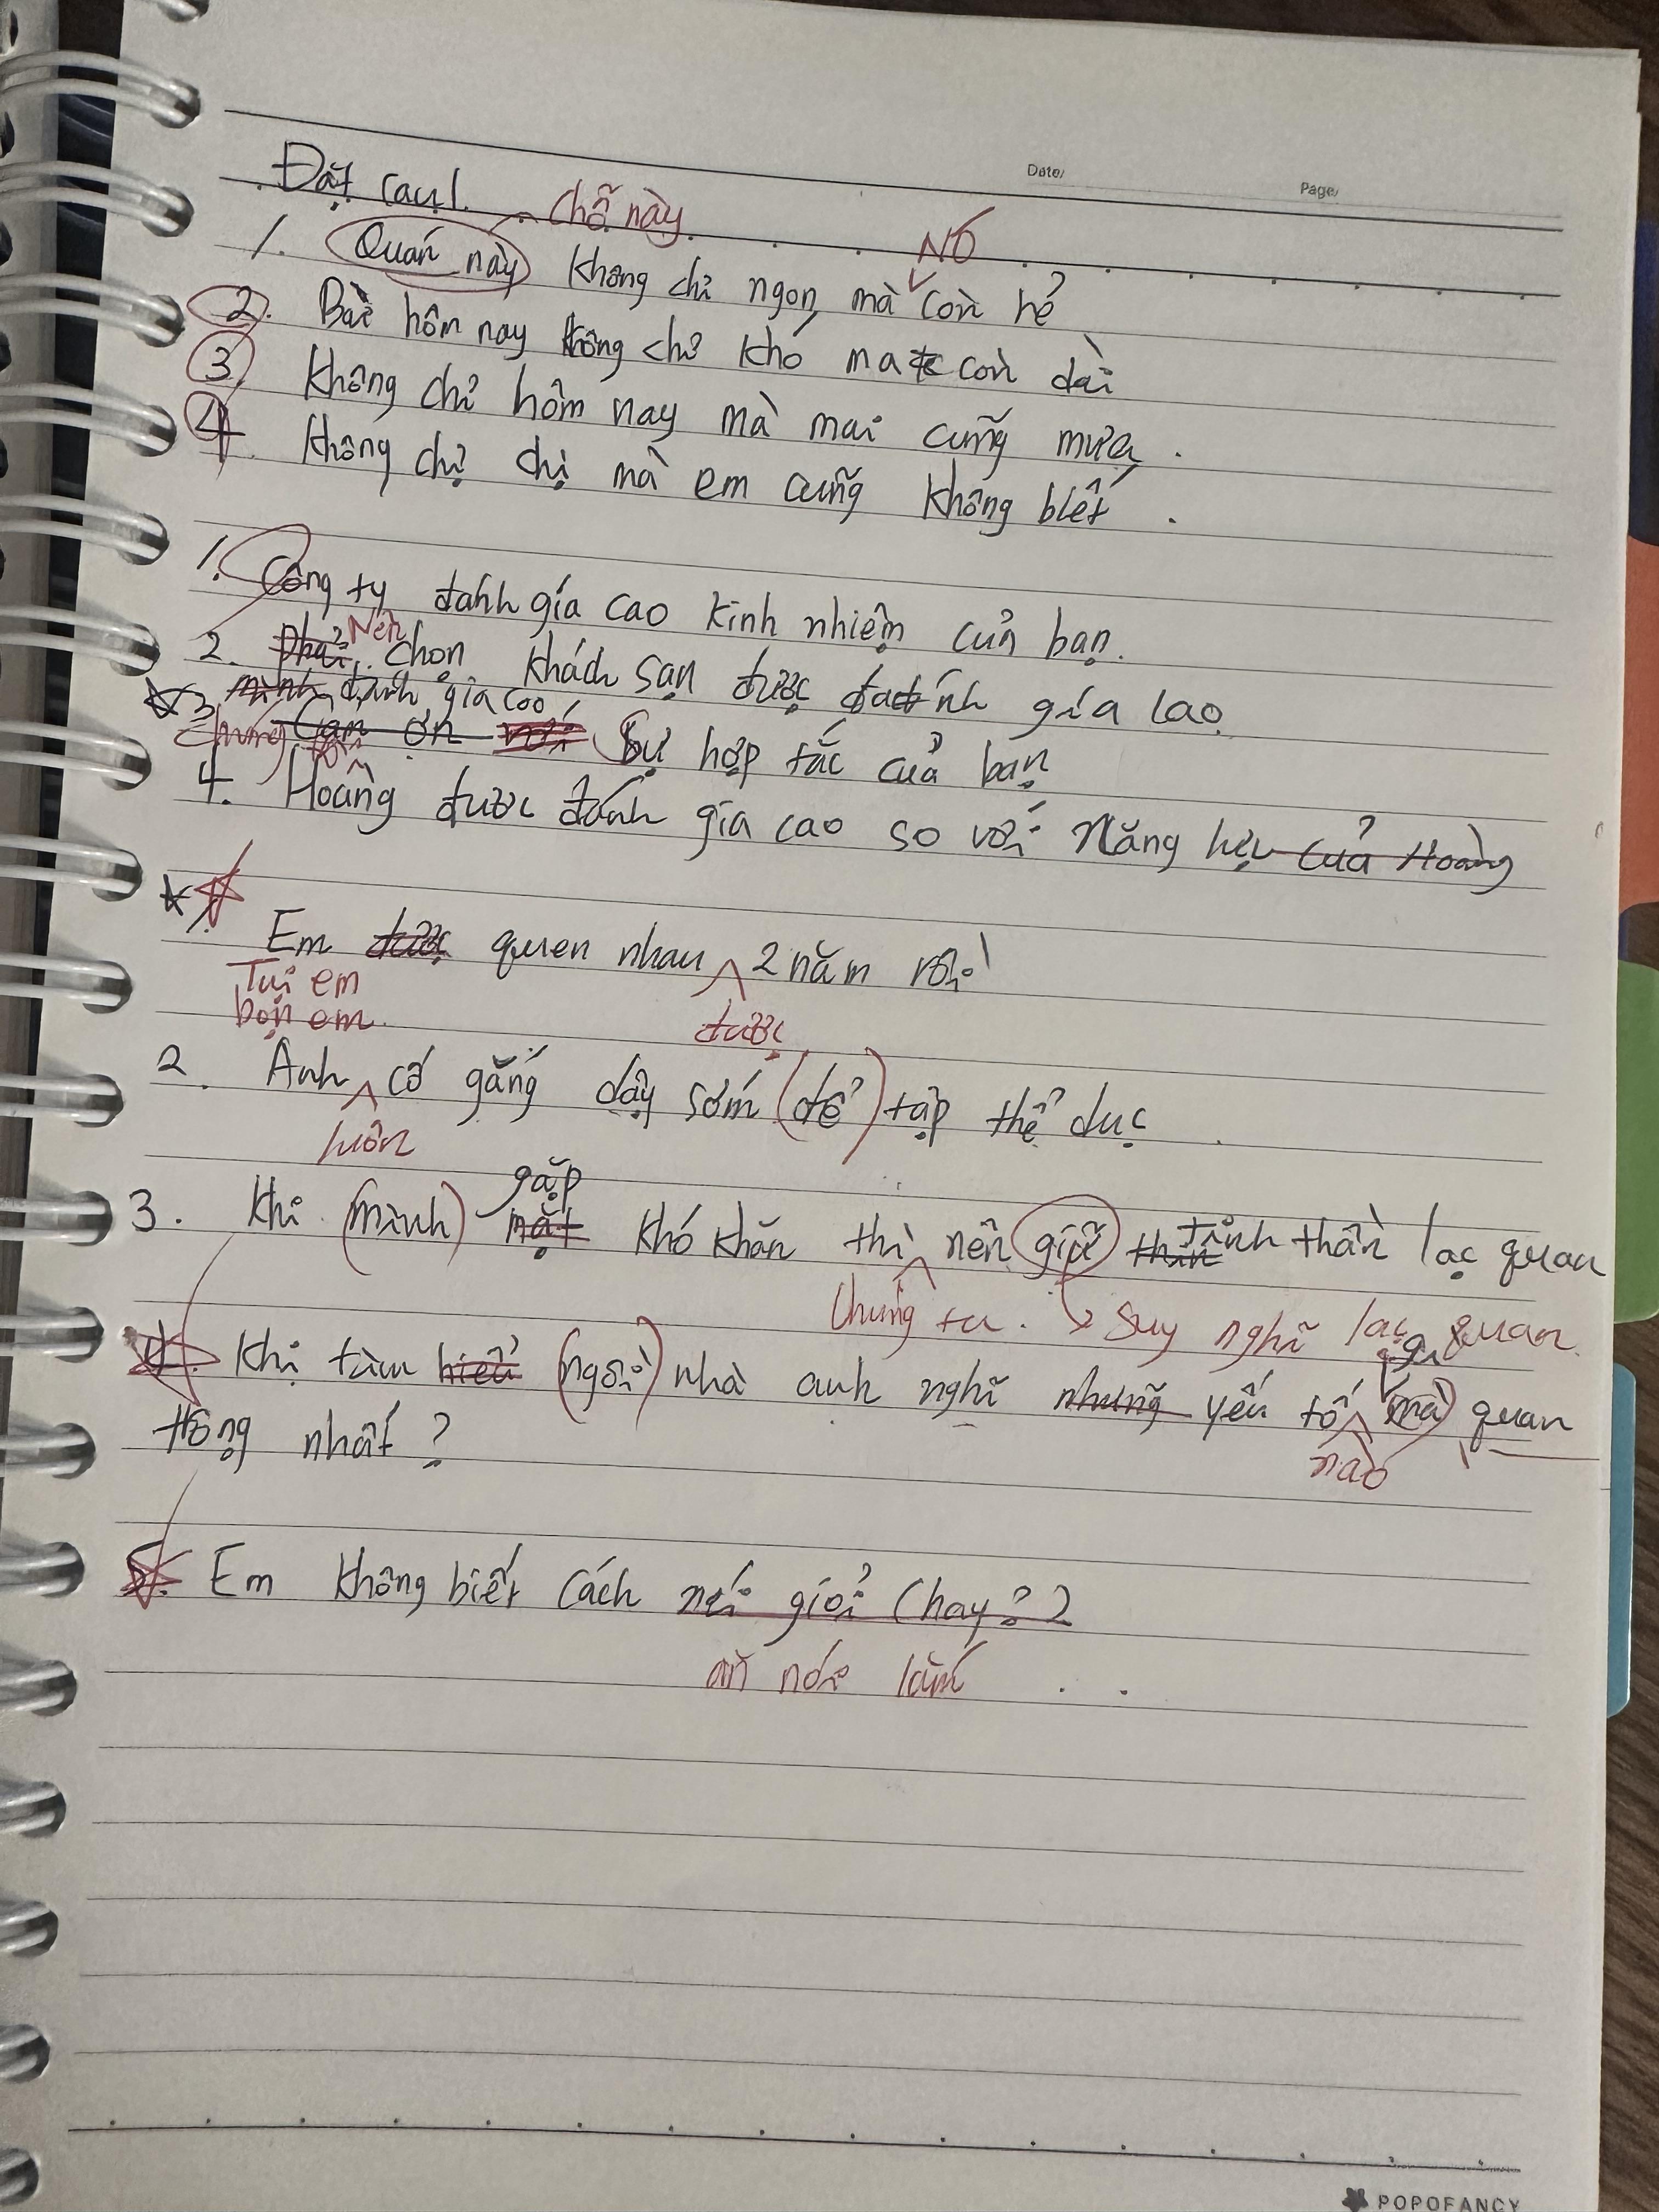 Date/ Page/
Đặt câu!
chỗ này
NÓ
1. Quán này không chỉ ngon, mà còn rẻ
2. Bài hôm nay không chỉ khó mà còn dài
3. Không chỉ hôm nay mà mai cũng mưa.
4. Không chỉ chị mà em cũng không biết.
1. Công ty đánh gía cao kinh nhiệm của bạn.
Nên
2. phải chọn khách sạn được đánh gía cao
mình đánh gía cao
3 Cảm ơn với Sự hợp tác của bạn
Chúng tôi
4. Hoàng được đánh gía cao so với Năng lực của Hoàng
1. Em được quen nhau 2 năm rồi
Tụi em
bọn em
được
2. Anh cố gắng dậy sớm (để) tập thể dục
luôn
gặp
3. Khi (mình) mặt khó khăn thì nên giữ tinh thần lạc quan
Chúng ta. → Suy nghĩ lạc quan.
gì
4. Khi tìm hiểu (ngôi) nhà anh nghĩ những yếu tố mà quan
nào
trọng nhất?
5. Em không biết cách nói giỏi (hay?)
ăn nói lắm
POPOFANCY